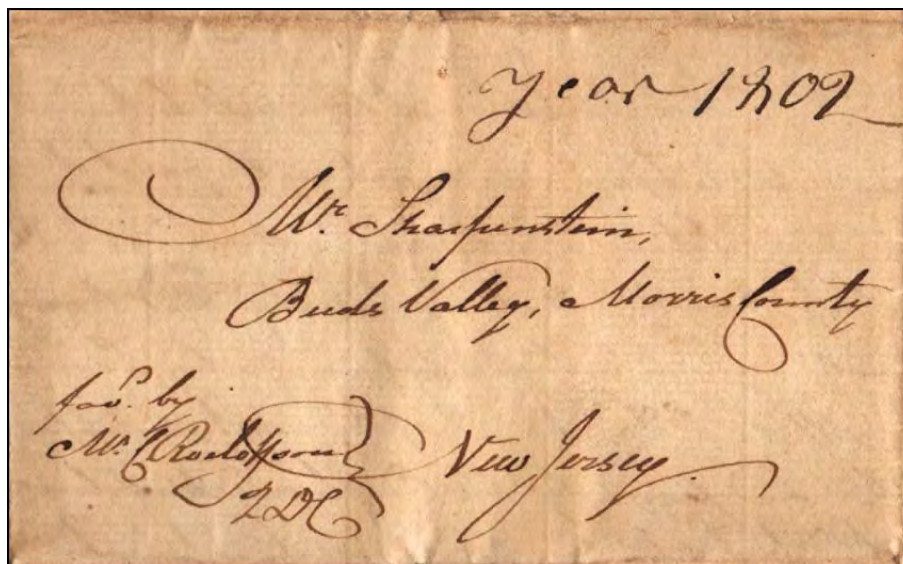 Year 1802
Mr. Sharpenstein,
Buds Valley, Morris County
favd. by
Mr. Roeloffson
New Jersey